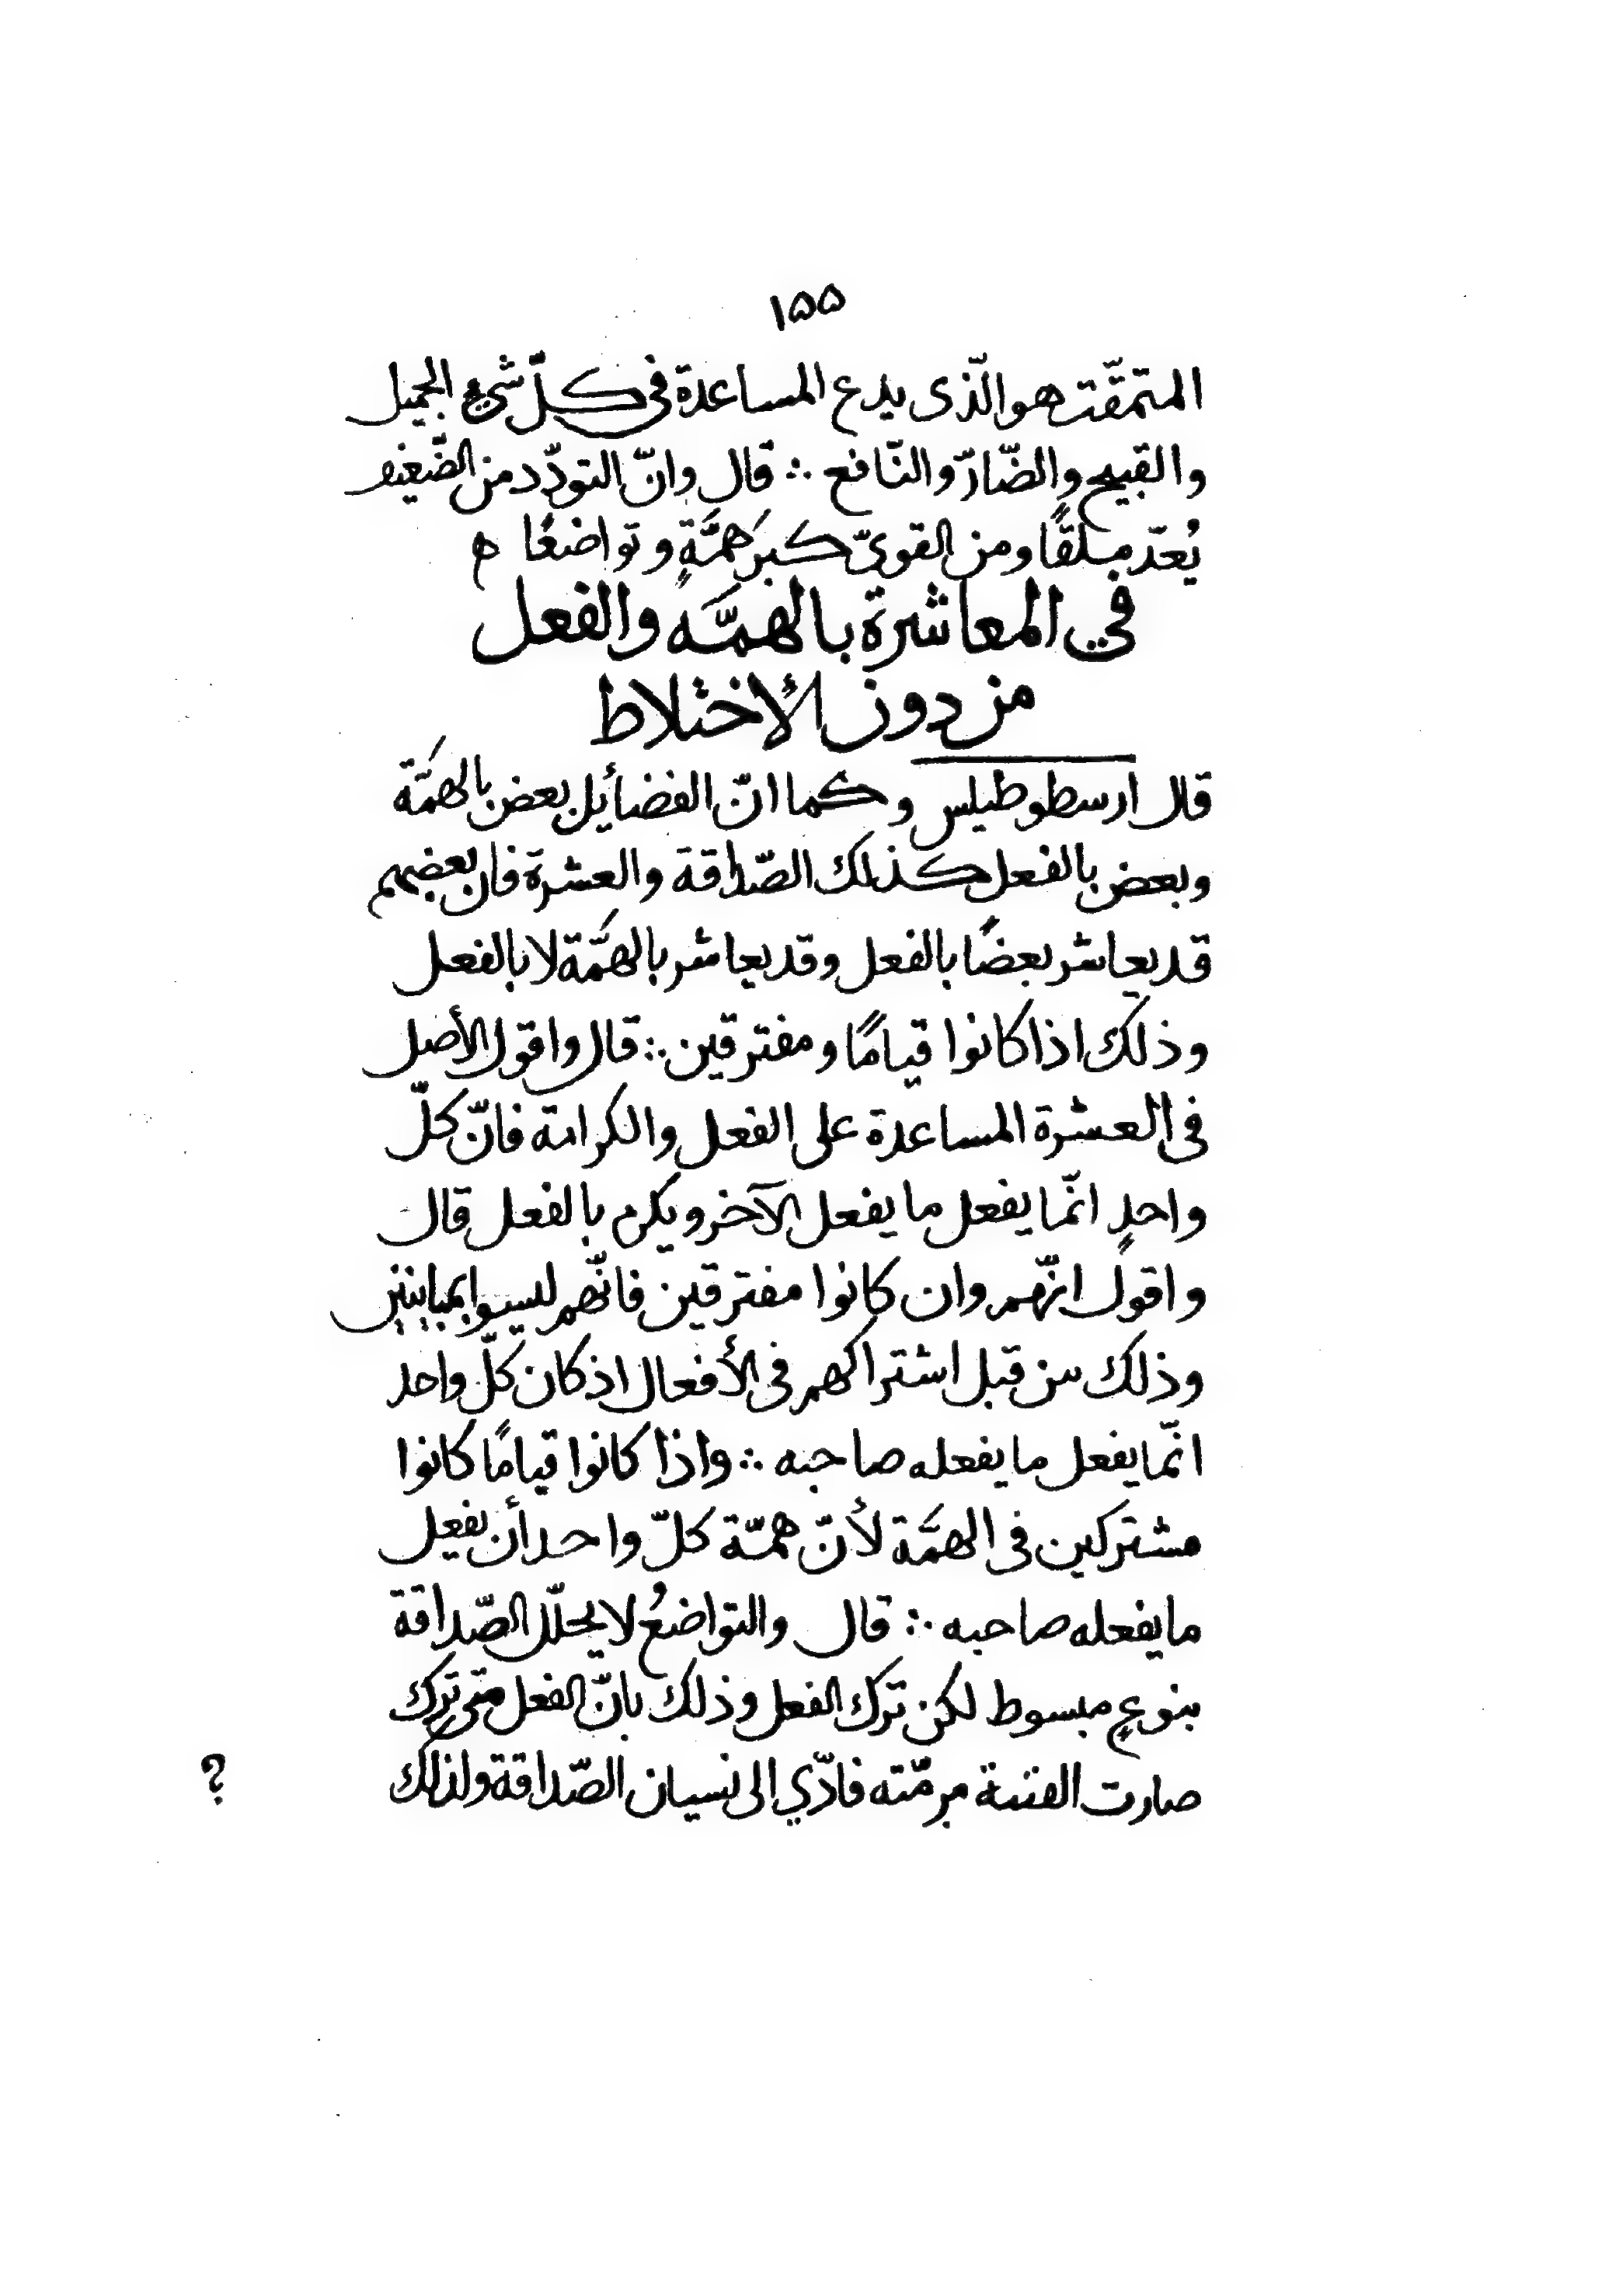 ۱۵۵
المتمقّت هو الّذى يدع المساعدة فى كلّ شىء الجميل
والقبيح والضّارّ والنّافع ∴ قال وانّ التودّد من الضّعيف
يُعدّ ملقًا ومن القوىّ كبرَ همَّةٍ وتواضعًا ه
في المعاشرة بالهمَّه والفعل
من دون الأختلاط
قال ارسطوطيلس وكما انّ الفضأيل بعض بالهمَّة
وبعض بالفعل كذلك الصّداقة والعشرة فان بعضهم
قد يعاشر بعضًا بالفعل وقد يعاشر بالهمَّة لا بالفعل
وذلك اذا كانوا قيامًا ومفترقين ∴ قال واقول الأصل
فى العشرة المساعدة على الفعل والكرامة فانّ كلّ
واحدٍ انّما يفعل ما يفعل الآخر ويكرم بالفعل قال
واقول انّهم وان كانوا مفترقين فانّهم ليسوا بمباينين
وذلك من قبل اشتراكهم فى الأفعال اذ كان كلّ واحد
انّما يفعل ما يفعله صاحبه ∴ واذا كانوا قيامًا كانوا
مشتركين فى الهمَّة لأنّ همّة كلّ واحد أن يفعل
ما يفعله صاحبه ∴ قال والتواضعُ لا يحلّل الصّداقة
بنوعٍ مبسوط لكن ترك الفعل وذلك بانّ الفعل متى ترك
صارت الفتنة مرمّته فادّي الى نسيان الصّداقة ولذلك
؟